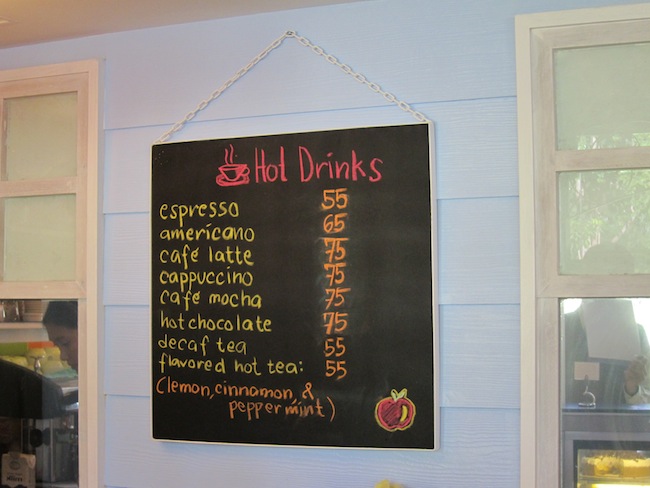 Hot Drinks
espresso 55
americano 65
café latte 75
cappuccino 75
café mocha 75
hot chocolate 75
decaf tea 55
flavored hot tea: 55
(lemon, cinnamon, &
peppermint)